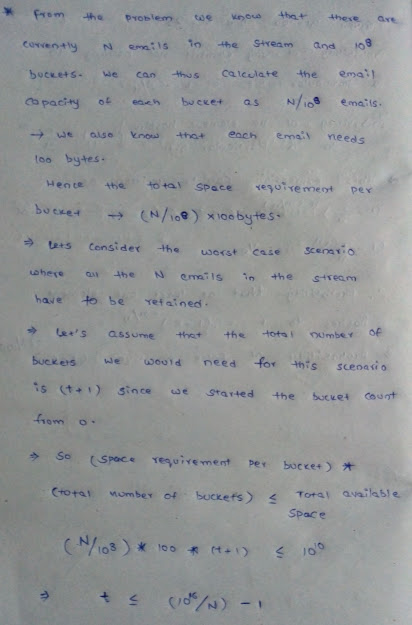 * From the problem we know that there are
currently N emails in the stream and 10⁸
buckets. We can thus calculate the email
capacity of each bucket as N/10⁸ emails.
→ we also know that each email needs
100 bytes.
Hence the total space requirement per
bucket → (N/10⁸) × 100 bytes.
⇒ Lets consider the worst case scenario
where all the N emails in the stream
have to be retained.
⇒ Let's assume that the total number of
buckets we would need for this scenario
is (t+1) since we started the bucket count
from 0.
⇒ So (space requirement per bucket) *
(total number of buckets) ≤ Total available
space
(N/10⁸) * 100 * (t+1) ≤ 10¹⁰
⇒ t ≤ (10¹⁶/N) - 1